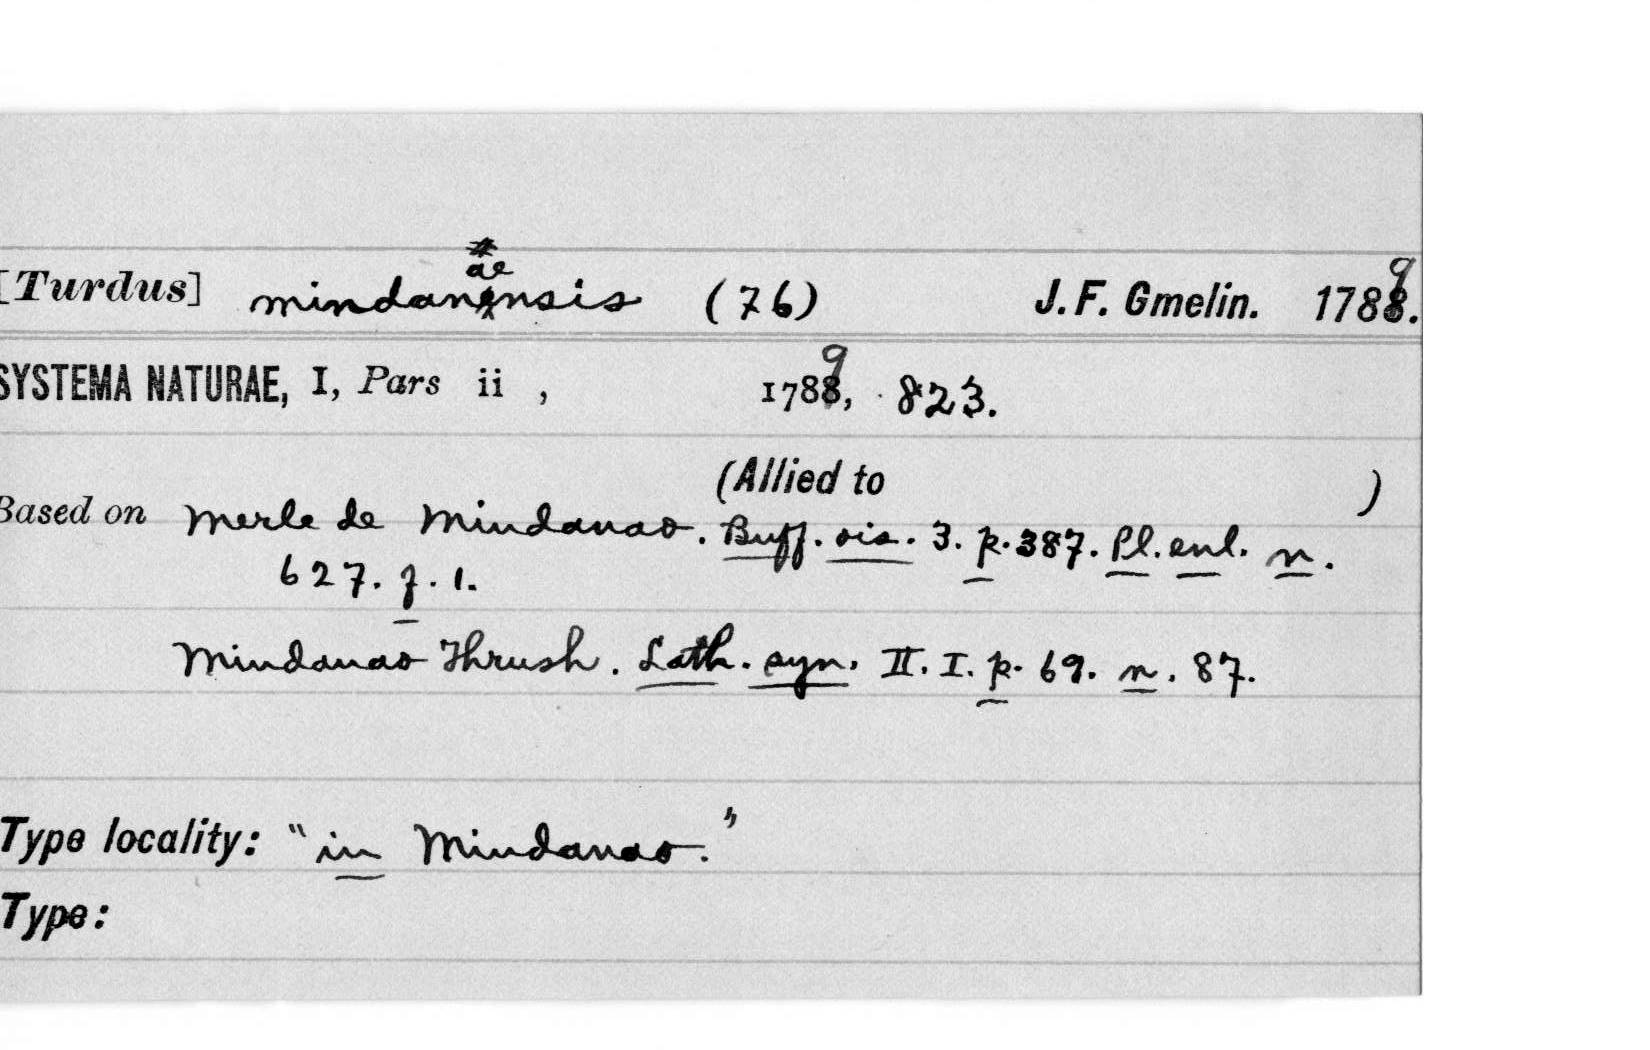 [Turdus] mindanaensis (76) J. F. Gmelin. 1789.
SYSTEMA NATURAE, I, Pars ii , 1789, 823.
(Allied to )
Based on Merle de Mindanao. Buff. ois. 3. p. 387. Pl. enl. n.
627. f. 1.
Mindanao Thrush. Lath. syn. II. I. p. 69. n. 87.
Type locality: "in Mindanao."
Type: